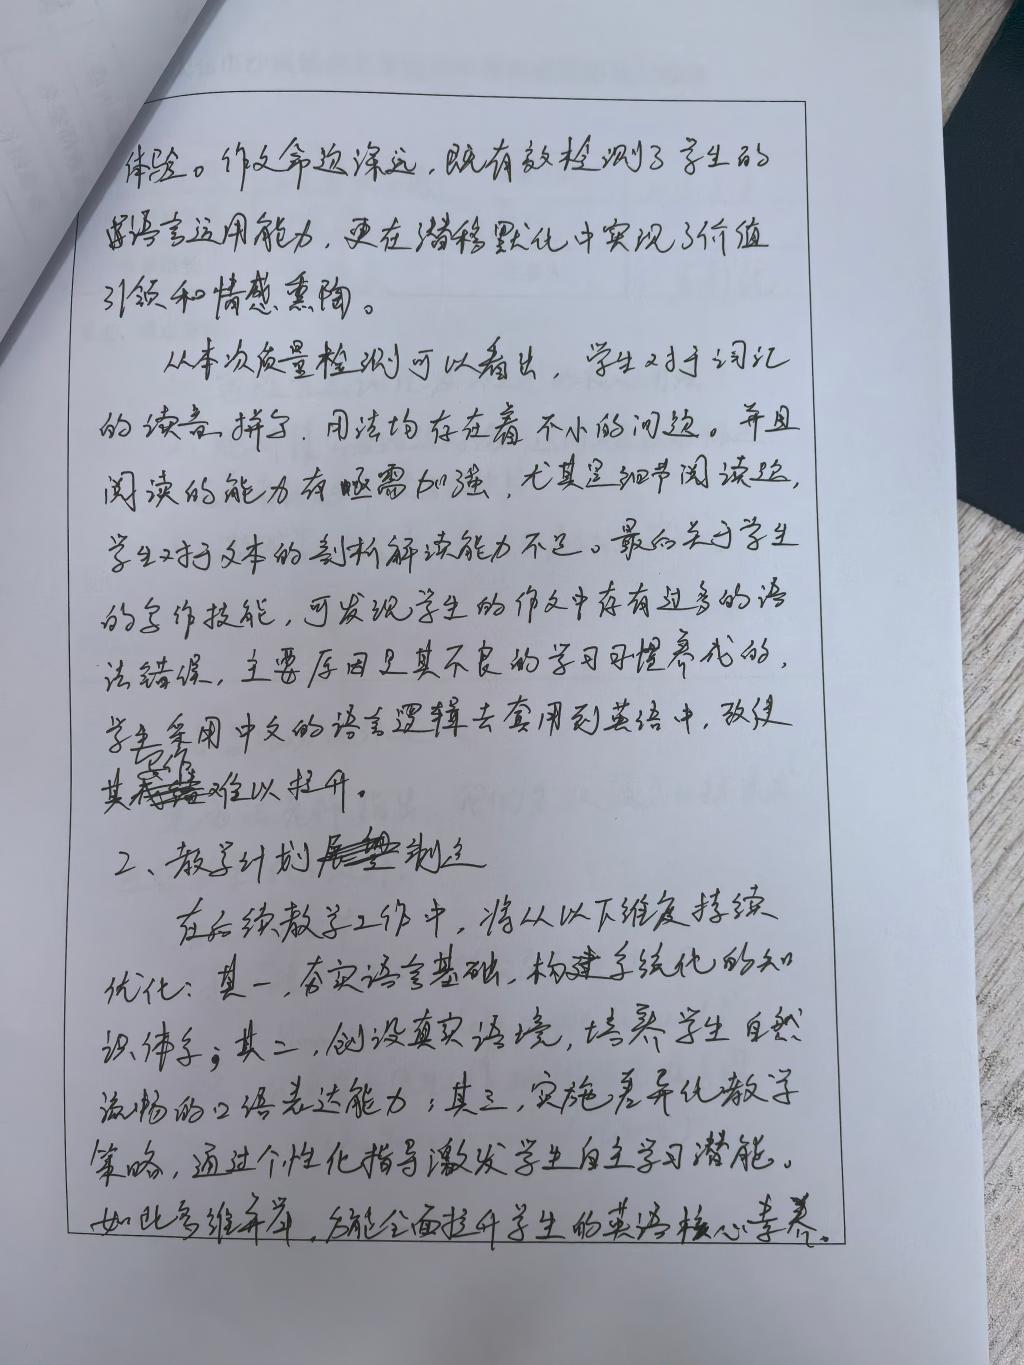 体验。作文命题深远，既有效检测了学生的
语言运用能力，更在潜移默化中实现了价值
引领和情感熏陶。
从本次质量检测可以看出，学生对于词汇
的读音、拼字、用法均存在着不小的问题。并且
阅读的能力存亟需加强，尤其是细节阅读题，
学生对于文本的剖析解读能力不足。最后关于学生
的写作技能，可发现学生的作文中存有过多的语
法错误，主要原因是其不良的学习习惯养成的，
学生采用中文的语言逻辑去套用到英语中，致使
其写作难以提升。
2、教学计划制定
在后续教学工作中，将从以下维度持续
优化：其一，夯实语言基础，构建系统化的知
识体系；其二，创设真实语境，培养学生自然
流畅的口语表达能力；其三，实施差异化教学
策略，通过个性化指导激发学生自主学习潜能。
如此多维并举，方能全面提升学生的英语核心素养。